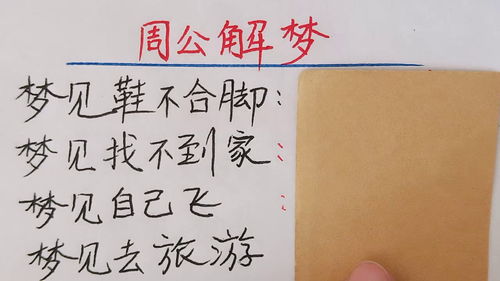 周公解梦
梦见鞋不合脚:
梦见找不到家:
梦见自己飞:
梦见去旅游